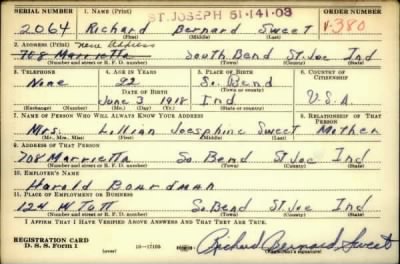 SERIAL NUMBER 1. NAME (Print) ST. JOSEPH 51-141-03 ORDER NUMBER
2064 Richard Bernard Sweet V-380
(First) (Middle) (Last)
2. ADDRESS (Print) New Address
708 Marrietta South Bend St. Joe Ind
(Number and street or R. F. D. number) (Town) (County) (State)
3. TELEPHONE 4. AGE IN YEARS 5. PLACE OF BIRTH 6. COUNTRY OF CITIZENSHIP
None 22 So. Bend
DATE OF BIRTH (Town or county)
June 3 1918 Ind U.S.A.
(Exchange) (Number) (Mo.) (Day) (Yr.) (State or country)
7. NAME OF PERSON WHO WILL ALWAYS KNOW YOUR ADDRESS 8. RELATIONSHIP OF THAT PERSON
Mrs. Lillian Joesphine Sweet Mother
(Mr., Mrs., Miss) (First) (Middle) (Last)
9. ADDRESS OF THAT PERSON
708 Marrietta So. Bend St Joe Ind
(Number and street or R. F. D. number) (Town) (County) (State)
10. EMPLOYER'S NAME
Harold Boardman
11. PLACE OF EMPLOYMENT OR BUSINESS
124 W Tutt So. Bend St Joe Ind
(Number and street or R. F. D. number) (Town) (County) (State)
I AFFIRM THAT I HAVE VERIFIED ABOVE ANSWERS AND THAT THEY ARE TRUE.
REGISTRATION CARD
D. S. S. Form 1 16-17105 Richard Bernard Sweet
(Registrant's signature)